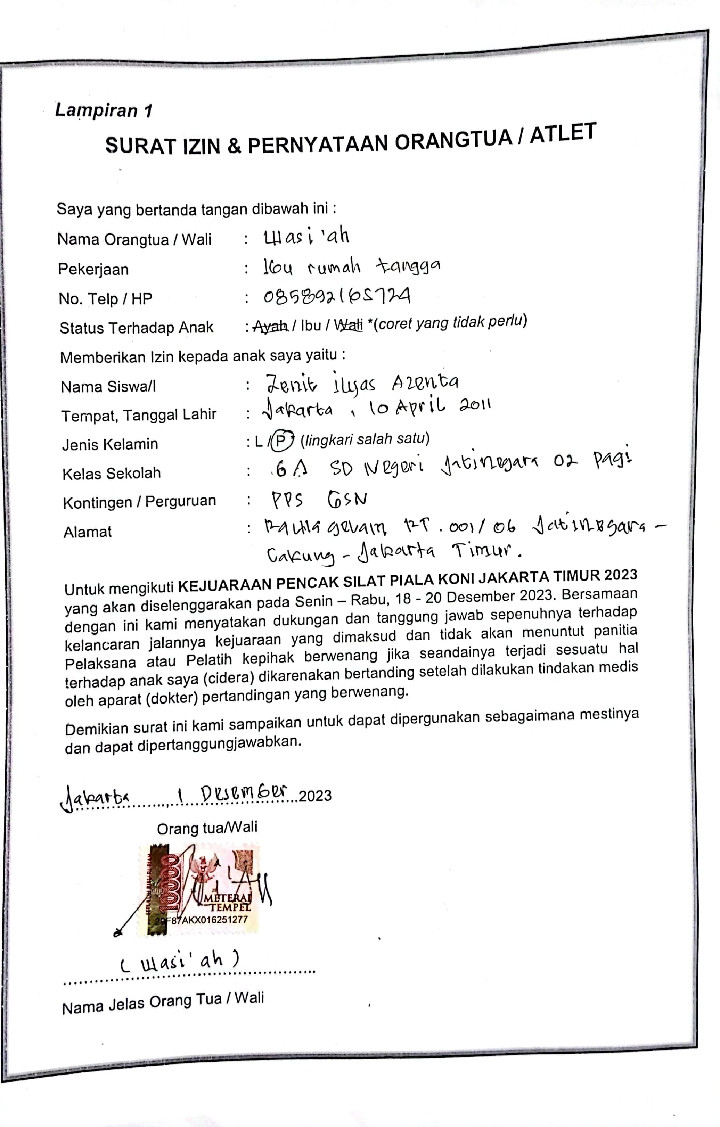 Lampiran 1
SURAT IZIN & PERNYATAAN ORANGTUA / ATLET
Saya yang bertanda tangan dibawah ini :
Nama Orangtua / Wali : Wasi'ah
Pekerjaan : Ibu rumah tangga
No. Telp / HP :
Status Terhadap Anak : Ayah / Ibu / Wali *(coret yang tidak perlu)
Memberikan Izin kepada anak saya yaitu :
Nama Siswa/I : Zenit ilyas Azenta
Tempat, Tanggal Lahir : Jakarta , 10 April 2011
Jenis Kelamin : L / P (lingkari salah satu)
Kelas Sekolah : 6 A SD Negeri Jatinegara 02 Pagi
Kontingen / Perguruan : PPS GSN
Alamat : RAWA gelam RT . 001 / 06 Jatinegara -
Cakung - Jakarta Timur .
Untuk mengikuti KEJUARAAN PENCAK SILAT PIALA KONI JAKARTA TIMUR 2023
yang akan diselenggarakan pada Senin – Rabu, 18 - 20 Desember 2023. Bersamaan
dengan ini kami menyatakan dukungan dan tanggung jawab sepenuhnya terhadap
kelancaran jalannya kejuaraan yang dimaksud dan tidak akan menuntut panitia
Pelaksana atau Pelatih kepihak berwenang jika seandainya terjadi sesuatu hal
terhadap anak saya (cidera) dikarenakan bertanding setelah dilakukan tindakan medis
oleh aparat (dokter) pertandingan yang berwenang.
Demikian surat ini kami sampaikan untuk dapat dipergunakan sebagaimana mestinya
dan dapat dipertanggungjawabkan.
Jakarta, 1 Desember 2023
Orang tua/Wali
10000
METERAI
TEMPEL
F87AKX016251277
( Wasi'ah )
Nama Jelas Orang Tua / Wali